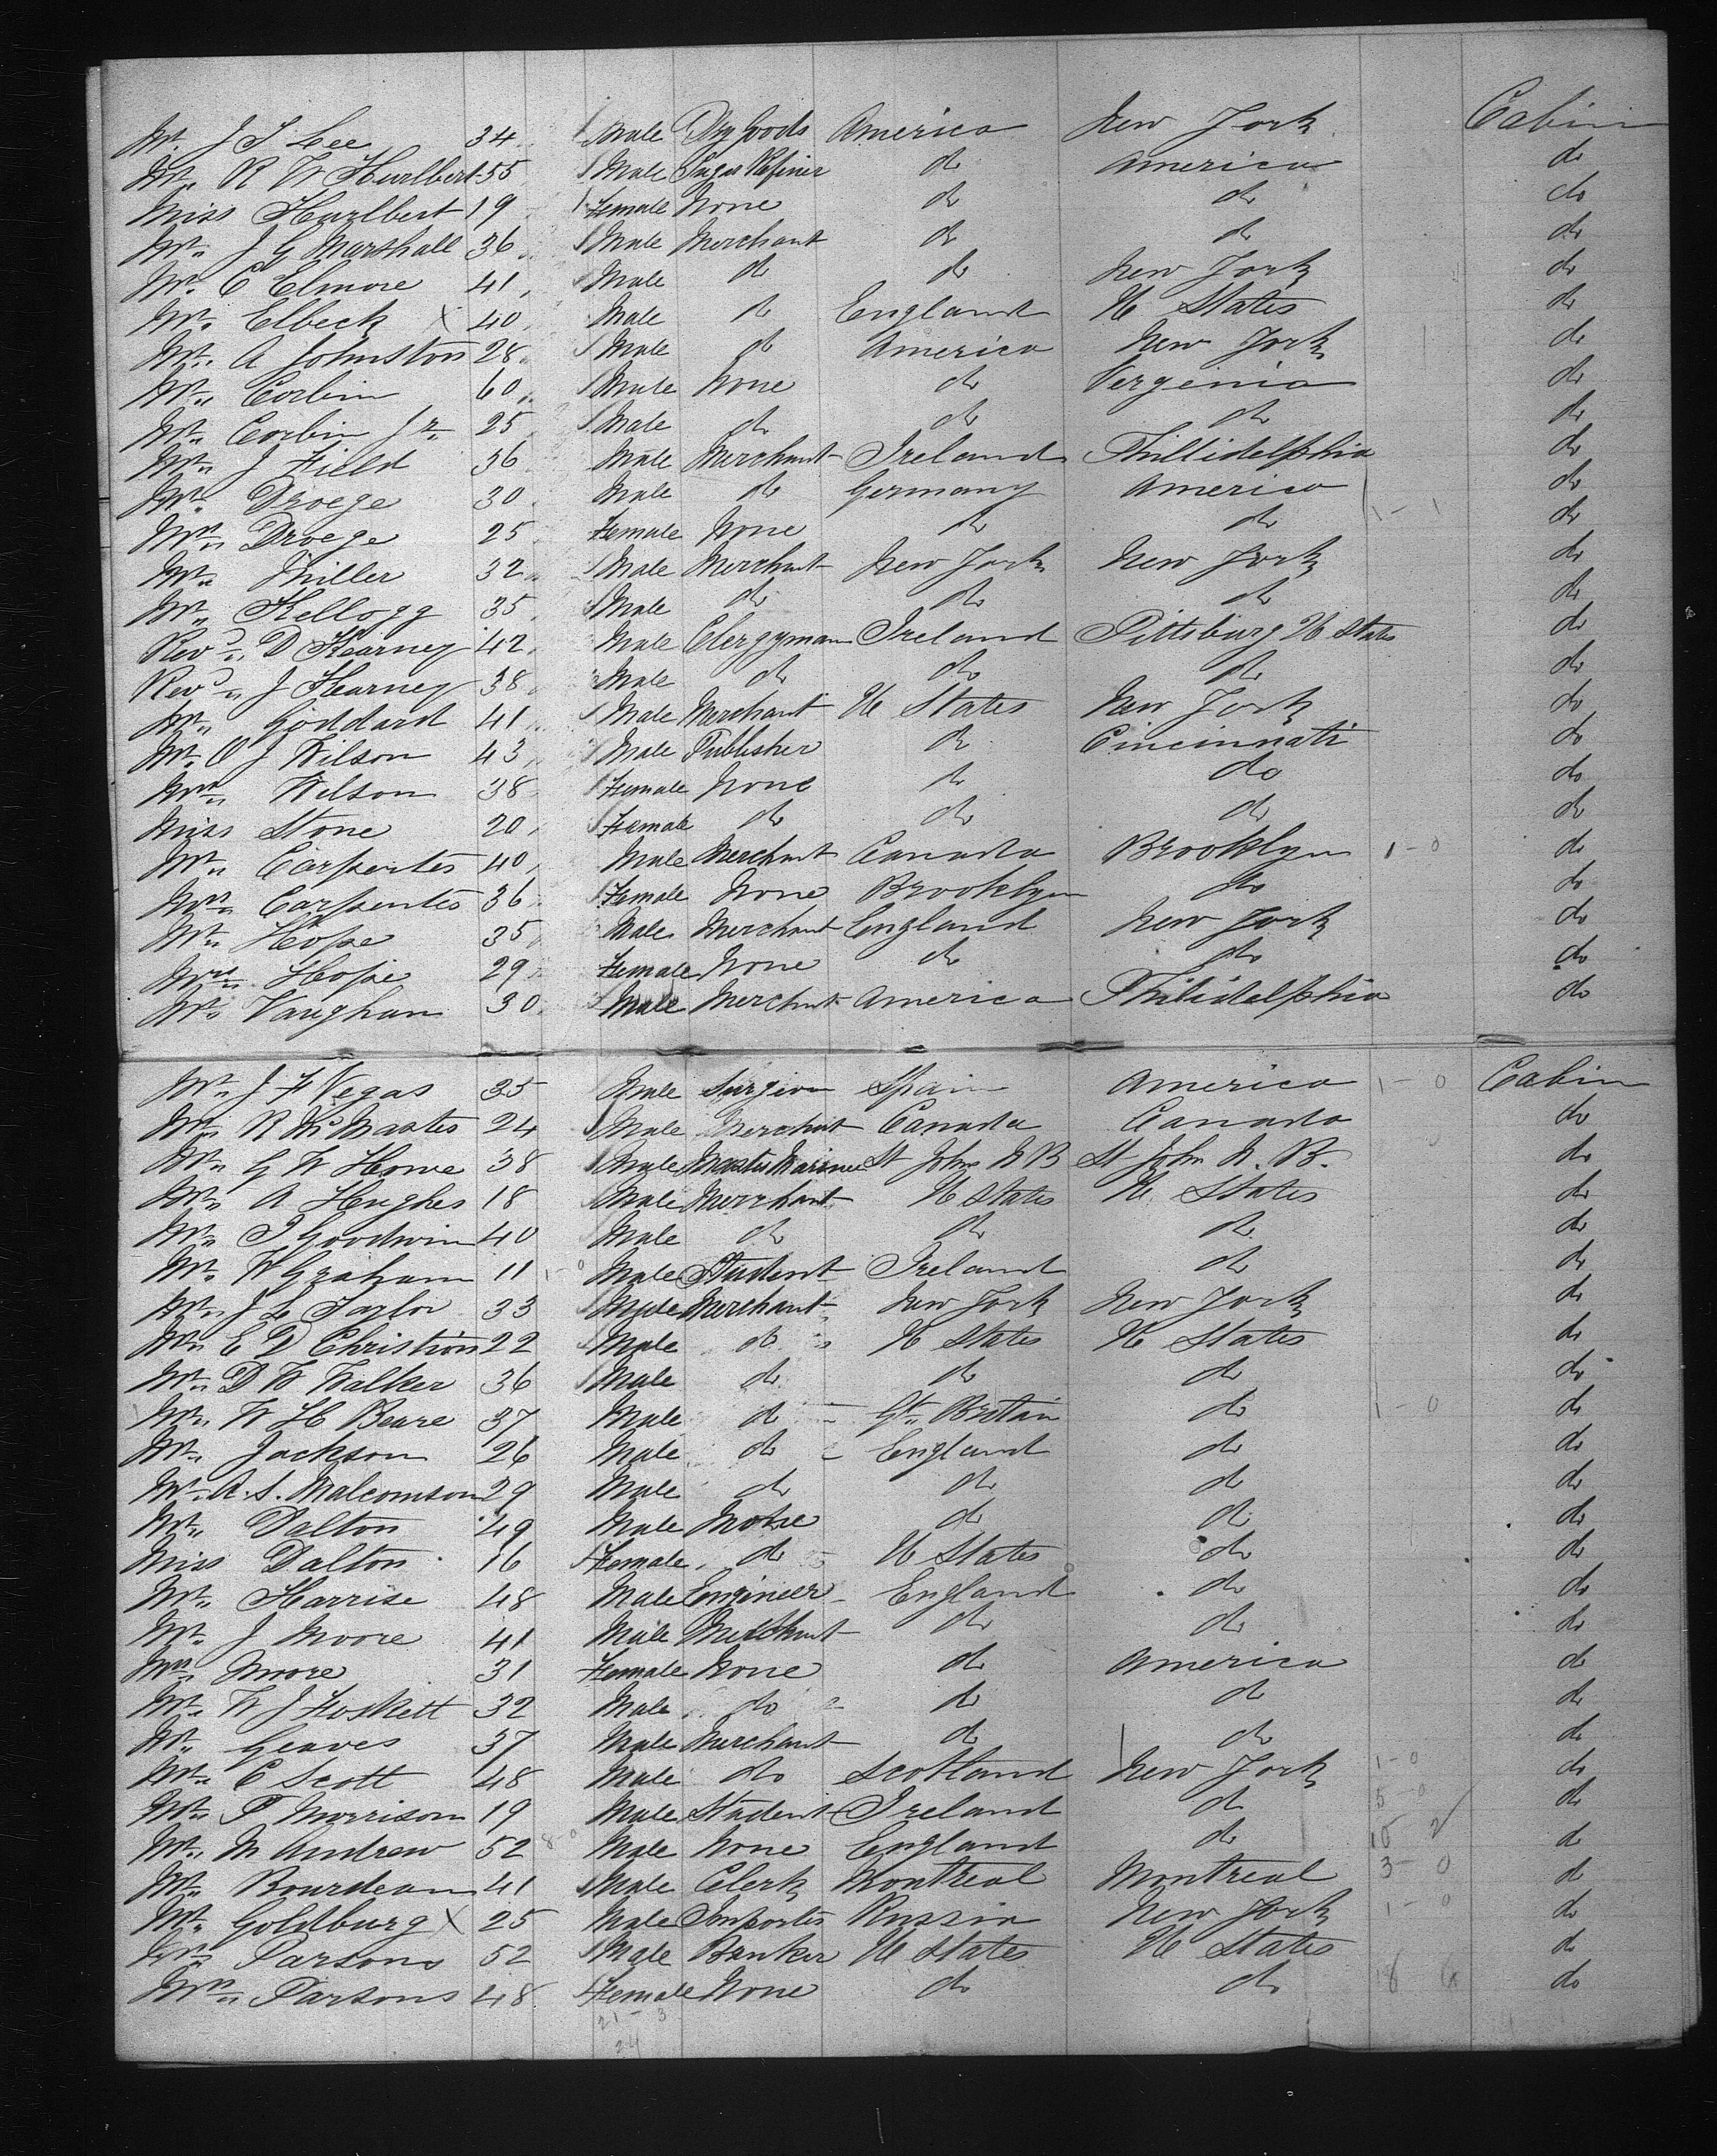 Mr. J T Lee 34 Male Dry Goods America New York Cabin
Mr. R W Hurlbert 55 Male Sugar Refiner do America do
Miss Hurlbert 19 Female None do do do
Mr. J G Marshall 36 Male Merchant do do do
Mr. C Elmore 41 Male do do New York do
Mr. Elbeck X 40 Male do England U States do
Mr. A Johnston 28 Male do America New York do
Mr. Corbin 60 Male None do Verginia do
Mr. Corbin Jr. 25 Male do do do do
Mr. J Field 36 Male Merchant Ireland Phillidelphia do
Mr. Droege 30 Male do Germany America do
Mrs. Droege 25 Female None do do 1-1 do
Mr. Miller 32 Male Merchant New York New York do
Mr. Kellogg 35 Male do do do do
Revd. D Kearney 42 Male Clergyman Ireland Pittsburg U States do
Revd. J Kearney 38 Male do do do do
Mr. Goddard 41 Male Merchant U States New York do
Mr. O J Wilson 43 Male Publisher do Cincinnati do
Mrs. Wilson 38 Female None do do do
Miss Stone 20 Female do do do do
Mr. Carpenter 40 Male Merchant Canada Brooklyn 1-0 do
Mrs. Carpenter 36 Female None Brooklyn do do
Mr. Hope 35 Male Merchant England New York do
Mrs. Hope 29 Female None do do do
Mr. Vaughan 30 Male Merchant America Philidelphia do
Mr. J F Vegas 35 Male Surgeon Spain America 1-0 Cabin
Mr. R McMaster 24 Male Merchant Canada Canada do
Mr. G W Howe 38 Male Master Mariner St John N B St John N. B. do
Mr. A Hughes 18 Male Merchant U States U. States do
Mr. J Goodwin 40 Male do do do do
Mr. W Graham 11 1-0 Male Student Ireland do do
Mr. J L Taylor 33 Male Merchant New York New York do
Mr. E D Christion 22 Male do U States U States do
Mr. D W Walker 36 Male do do do do
Mr. W H Beare 37 Male do Gt. Britain do 1-0 do
Mr. Jackson 26 Male do England do do
Mr. A. S. Malcomson 29 Male do do do do
Mr. Dalton 49 Male None do do do
Miss Dalton 16 Female do U States do do
Mr. Harrise 48 Male Engineer England do do
Mr. J Moore 41 Male Merchant do do do
Mrs. Moore 31 Female None do America do
Mr. W J Foskett 32 Male do do do do
Mr. Geaves 37 Male Merchant do do do
Mr. C Scott 48 Male do Scotland New York 1-0 do
Mr. P Morrison 19 Male Student Ireland do 5-0 do
Mr. M Andrew 52 8-0 Male None England do 10 2 do
Mr. Bourdeau 41 Male Clerk Montreal Montreal 3-0 do
Mr. Goldburg X 25 Male Importer Russia New York 1-0 do
Mr. Parsons 52 Male Banker U States U States do
Mrs. Parsons 48 Female None do do 18 do
21-3
24